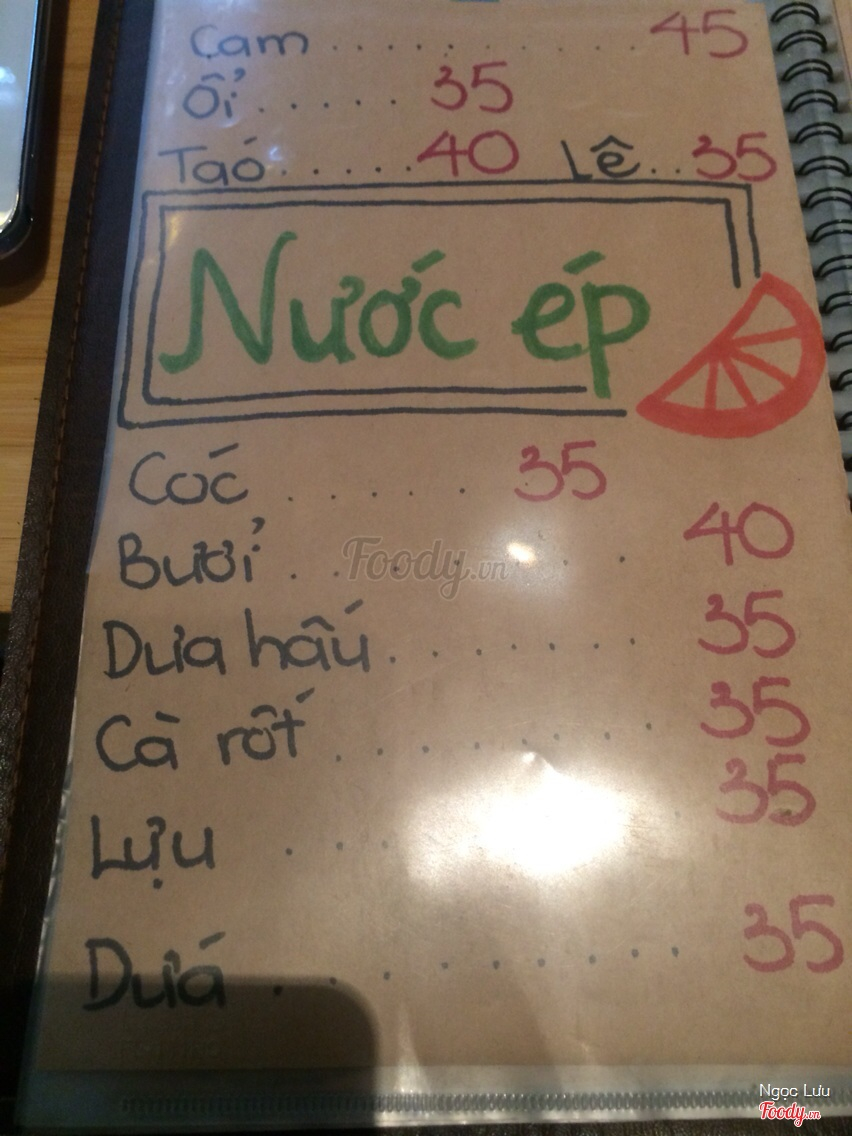 Cam . . . . . . . . . . . 45
Ổi . . . . . . 35
Taó . . . . . . 40 Lê . . 35
Nước ép
Coć . . . . . . 35
Bưởi . . . . . . . 40
Dưa hấu . . . . . . . 35
Cà rốt . . . . . . . . 35
Lựu . . . . 35
Dứa . . . . . . . . 35
Foody.vn
Ngọc Lưu
Foody.vn